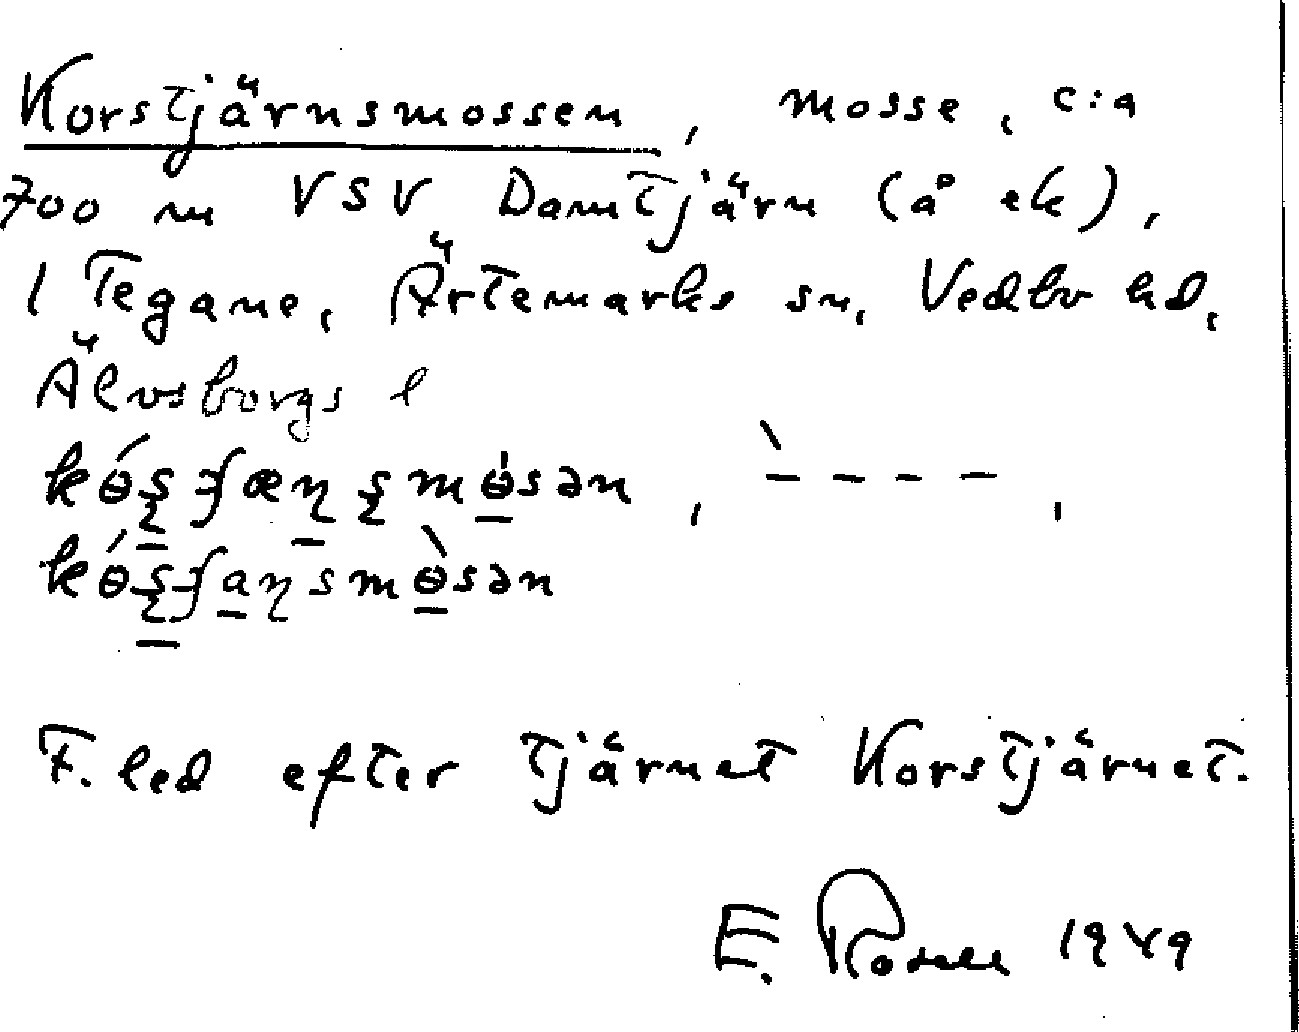 Korstjärnsmossen, mosse, c:a
700 m VSV Damtjärn (å ek),
i Tegane, Ärtemarks sn, Vedbo hd,
Älvsborgs l
F. led efter tjärnet Korstjärnet.
E. Rosell 1949